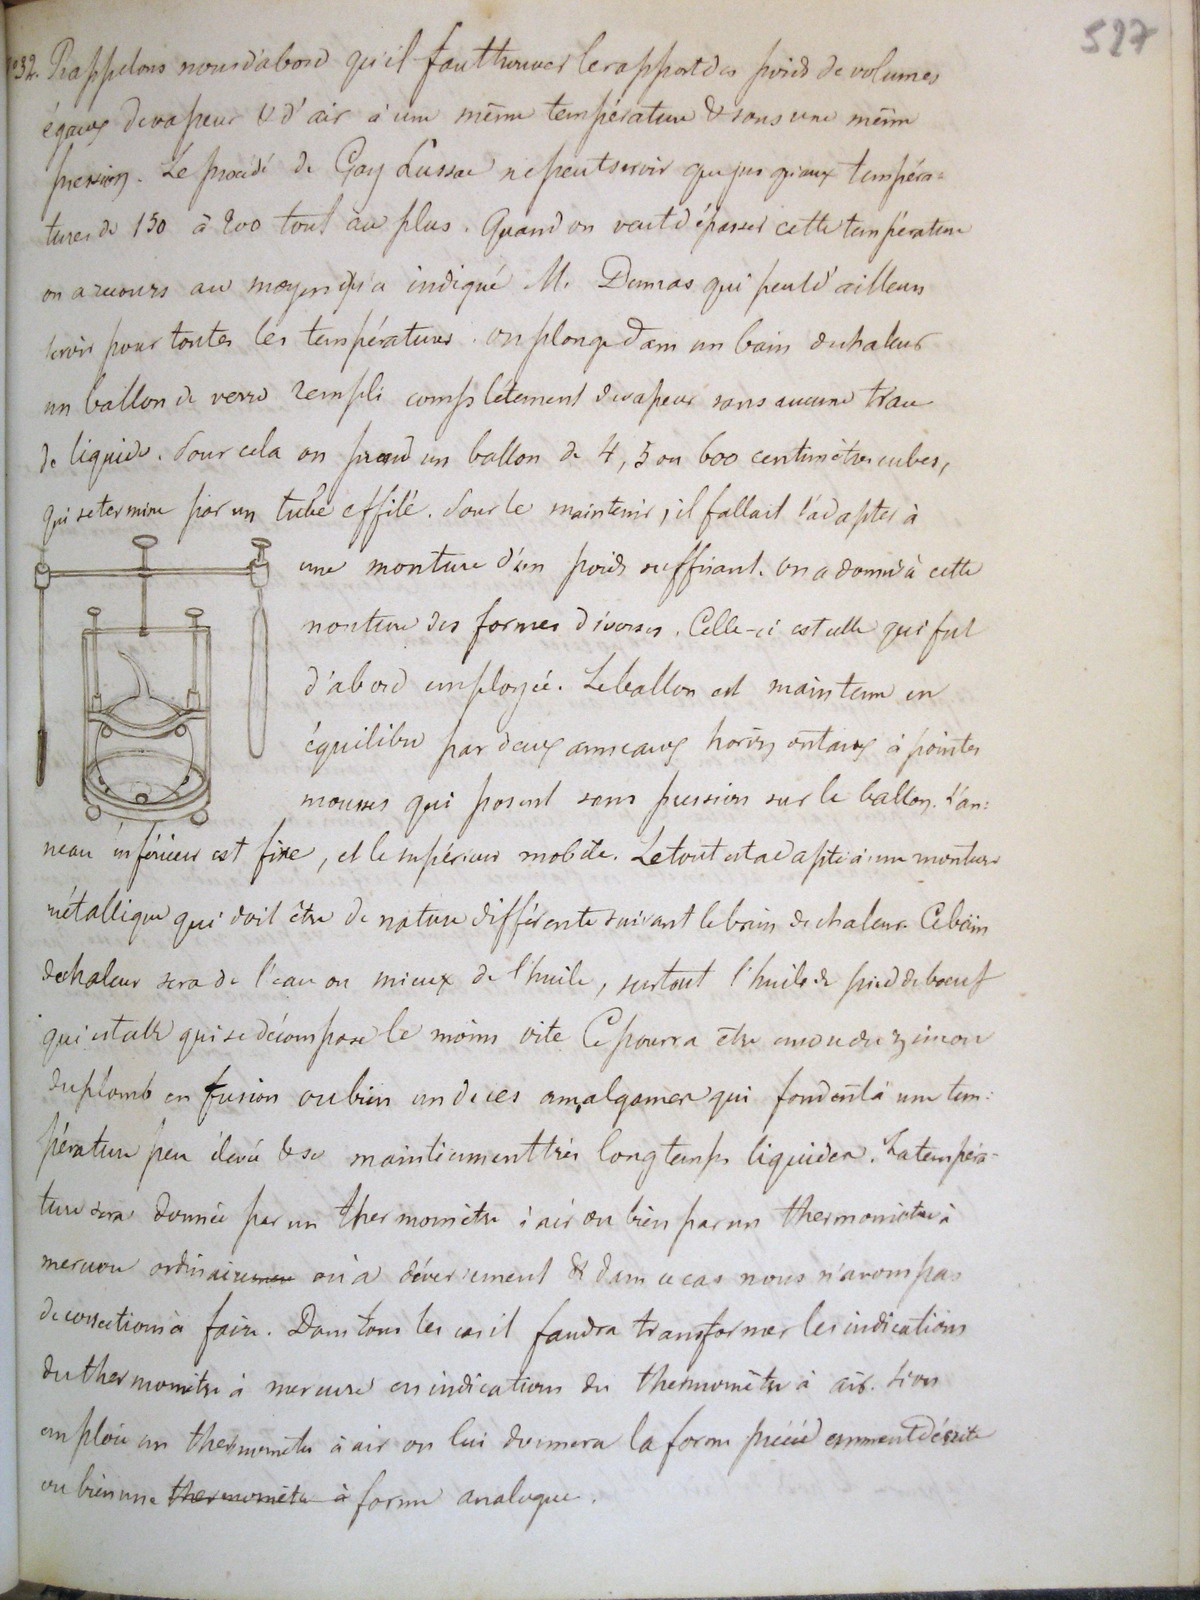 527
n°32. Rappelons nous d'abord qu'il faut trouver le rapport des poids de volumes
égaux de vapeur & d'air à une même température & sous une même
pression. Le procédé de Gay Lussac ne peut servir que jusqu'aux tempéra=
tures de 150 à 200 tout au plus. Quand on veut dépasser cette température
on a recours au moyen qu'a indiqué M. Dumas qui peut d'ailleurs
servir pour toutes les températures. on plonge dans un bain de chaleur
un ballon de verre rempli complètement de vapeur sans aucune trace
de liquide. Pour cela on prend un ballon de 4, 5 ou 600 centimètres cubes,
qui se termine par un tube effilé. Pour le maintenir, il fallait l'adapter à
une monture d'un poids suffisant. On a donné à cette
monture des formes diverses. Celle-ci est celle qui fut
d'abord employée. Le ballon est maintenu en
équilibre par deux anneaux horizontaux à pointes
mousses qui posent sans pression sur le ballon. L'an=
neau inférieur est fixe, et le supérieur mobile. Le tout est adapté à une monture
métallique qui doit être de nature différente suivant le bain de chaleur. Ce bain
de chaleur sera de l'eau ou mieux de l'huile, surtout l'huile de pied de boeuf
qui est celle qui se décompose le moins vite Ce pourra être encore du zinc ou
du plomb en fusion ou bien un de ces amalgames qui fondent à une tem=
pérature peu élevée & se maintiennent très longtemps liquides. La tempéra=
ture sera donnée par un thermomètre à air ou bien par un thermomètre à
mercure ordinaire ou à déversement & dans ce cas nous n'avons pas
de corrections à faire. Dans tous les cas il faudra transformer les indications
du thermomètre à mercure en indications du thermomètre à air. Si on
emploie un thermomètre à air on lui donnera la forme précédemment décrite
ou bien une thermomètre à forme analogue.